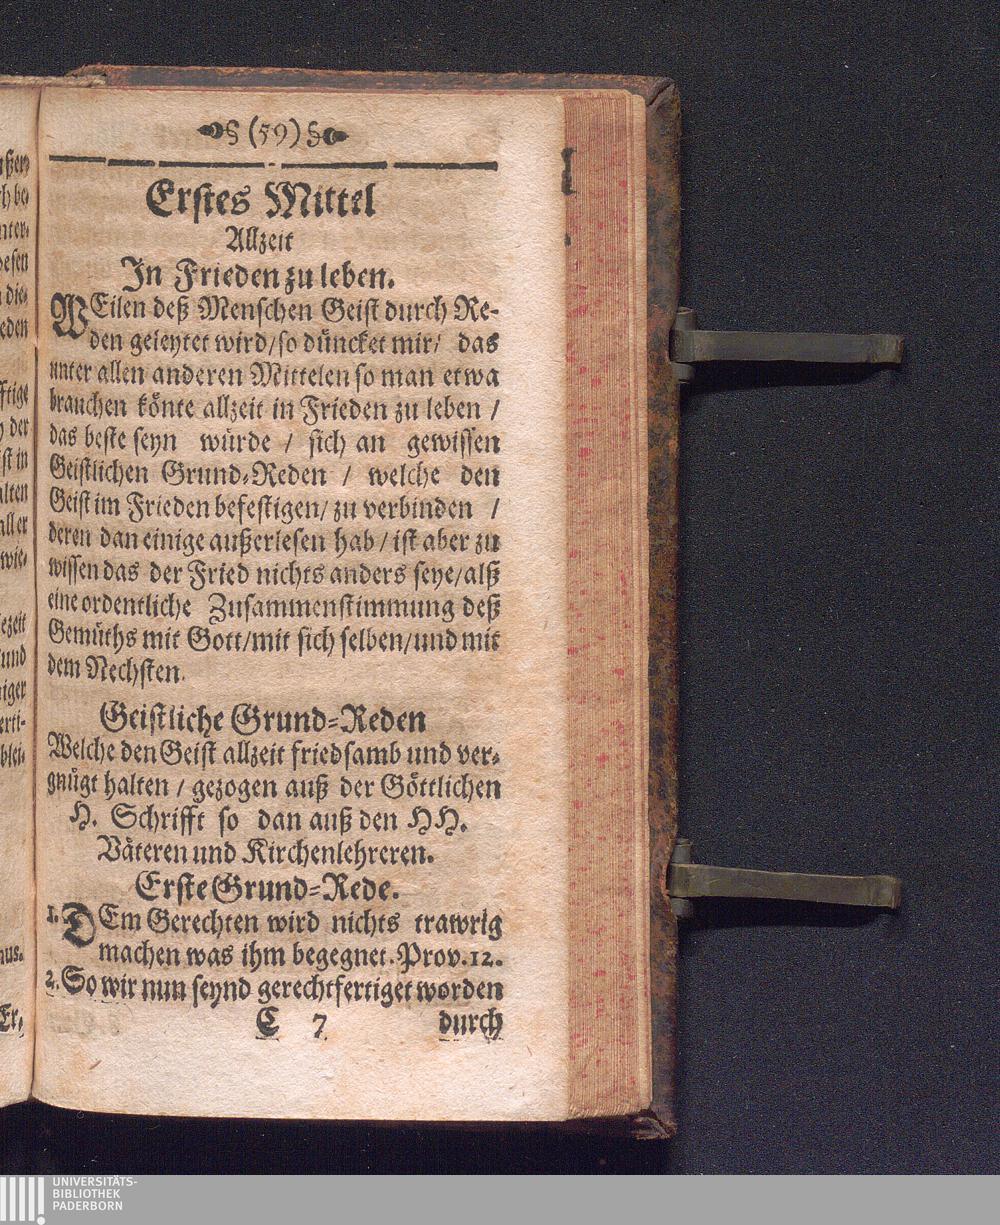 § (59) §
Erstes Mittel
Allzeit
In Frieden zu leben.
WEilen deß Menschen Geist durch Re-
den geleytet wird/ so düncket mir/ das
unter allen anderen Mittelen so man etwa
brauchen könte allzeit in Frieden zu leben /
das beste seyn würde / sich an gewissen
Geistlichen Grund-Reden / welche den
Geist im Frieden befestigen/ zu verbinden /
deren dan einige außerlesen hab / ist aber zu
wissen das der Fried nichts anders seye/ alß
eine ordentliche Zusammenstimmung deß
Gemüths mit Gott/ mit sich selben/ und mit
dem Nechsten.
Geistliche Grund-Reden
Welche den Geist allzeit friedsamb und ver-
gnügt halten / gezogen auß der Göttlichen
H. Schrifft so dan auß den HH.
Väteren und Kirchenlehreren.
Erste Grund-Rede.
1. DEm Gerechten wird nichts trawrig
machen was ihm begegnet. Prov. 12.
2. So wir nun seynd gerechtfertiget worden
C 7 durch
UNIVERSITÄTS-
BIBLIOTHEK
PADERBORN